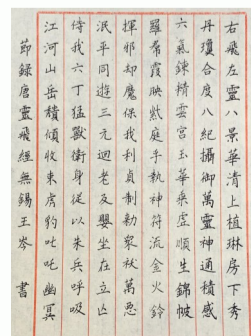 右飛左靈八景華清上植琳房下秀
丹瓊合度八紀攝御萬靈神通積感
六氣鍊精雲宮玉華乘虛順生錦帔
羅帬霞映紫庭手執神符流金火鈴
揮邪却魔保我利貞制勑眾祅萬惡
泯平同遊三元迴老反嬰坐在立亡
侍我六丁猛獸衛身從以朱兵呼吸
江河山岳頹傾收束虎豹叱吒幽冥
節錄唐靈飛經無錫王岑 書